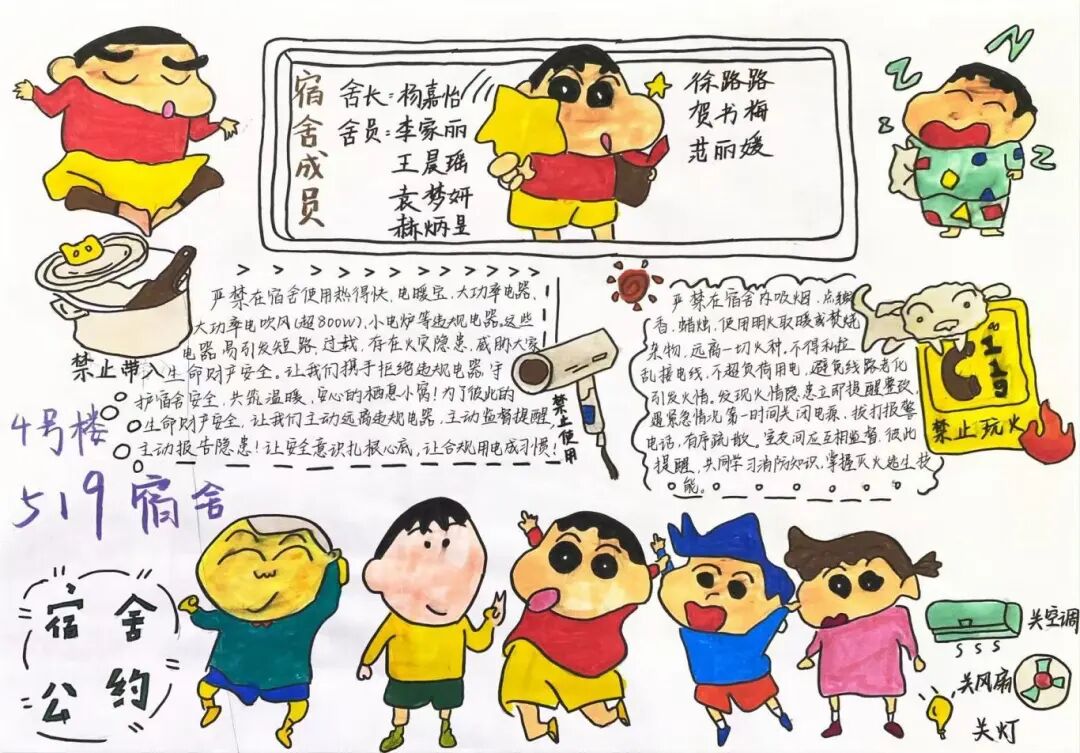 宿舍成员
舍长:杨嘉怡
舍员:李家丽
王晨瑶
袁梦妍
赫炳昱
徐路路
贺书梅
范丽媛
Z
Z
Z
8
8
禁止带入
严禁在宿舍使用热得快、电暖宝、大功率电器、
大功率电吹风(超800W)、小电炉等违规电器。这些
电器易引发短路、过载,存在火灾隐患,威胁大家
生命财产安全。让我们携手拒绝违规电器,守
护宿舍安全,共筑温暖、安心的栖息小窝!为了彼此的
生命财产安全,让我们主动远离违规电器,主动监督提醒,
主动报告隐患!让安全意识扎根心底,让合规用电成习惯!
禁止使用
严禁在宿舍内吸烟、点蚊
香、蜡烛,使用明火取暖或焚烧
杂物,远离一切火种,不得私拉
乱接电线,不超负荷用电,避免线路老化
引发火情。发现火情隐患立即提醒整改,
遇紧急情况第一时间关闭电源、拨打报警
电话,有序疏散。室友间应互相监督,彼此
提醒,共同学习消防知识,掌握灭火逃生技
能。
119
禁止玩火
4号楼
519宿舍
宿舍
公约
关空调
SSS
关风扇
关灯